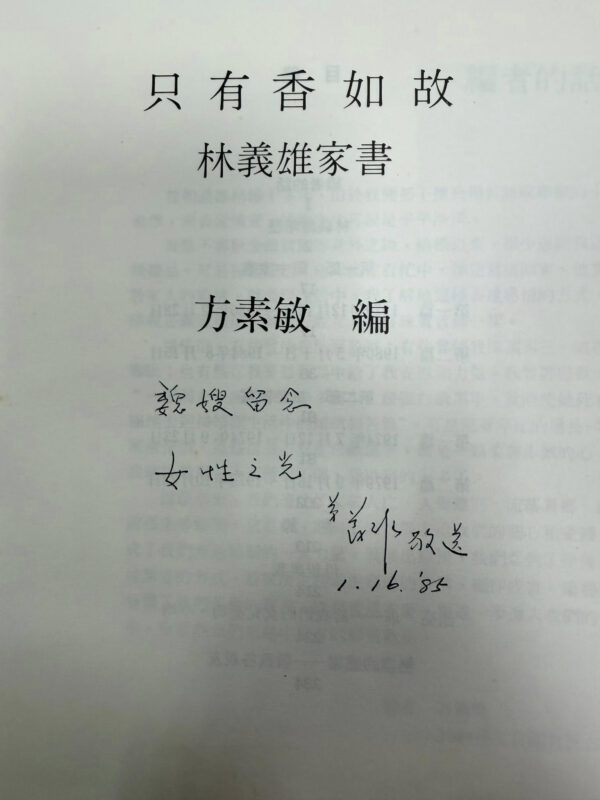 只有香如故
林義雄家書
方素敏 編
魏嫂留念
女性之光
弟 敬送
1.16.'85